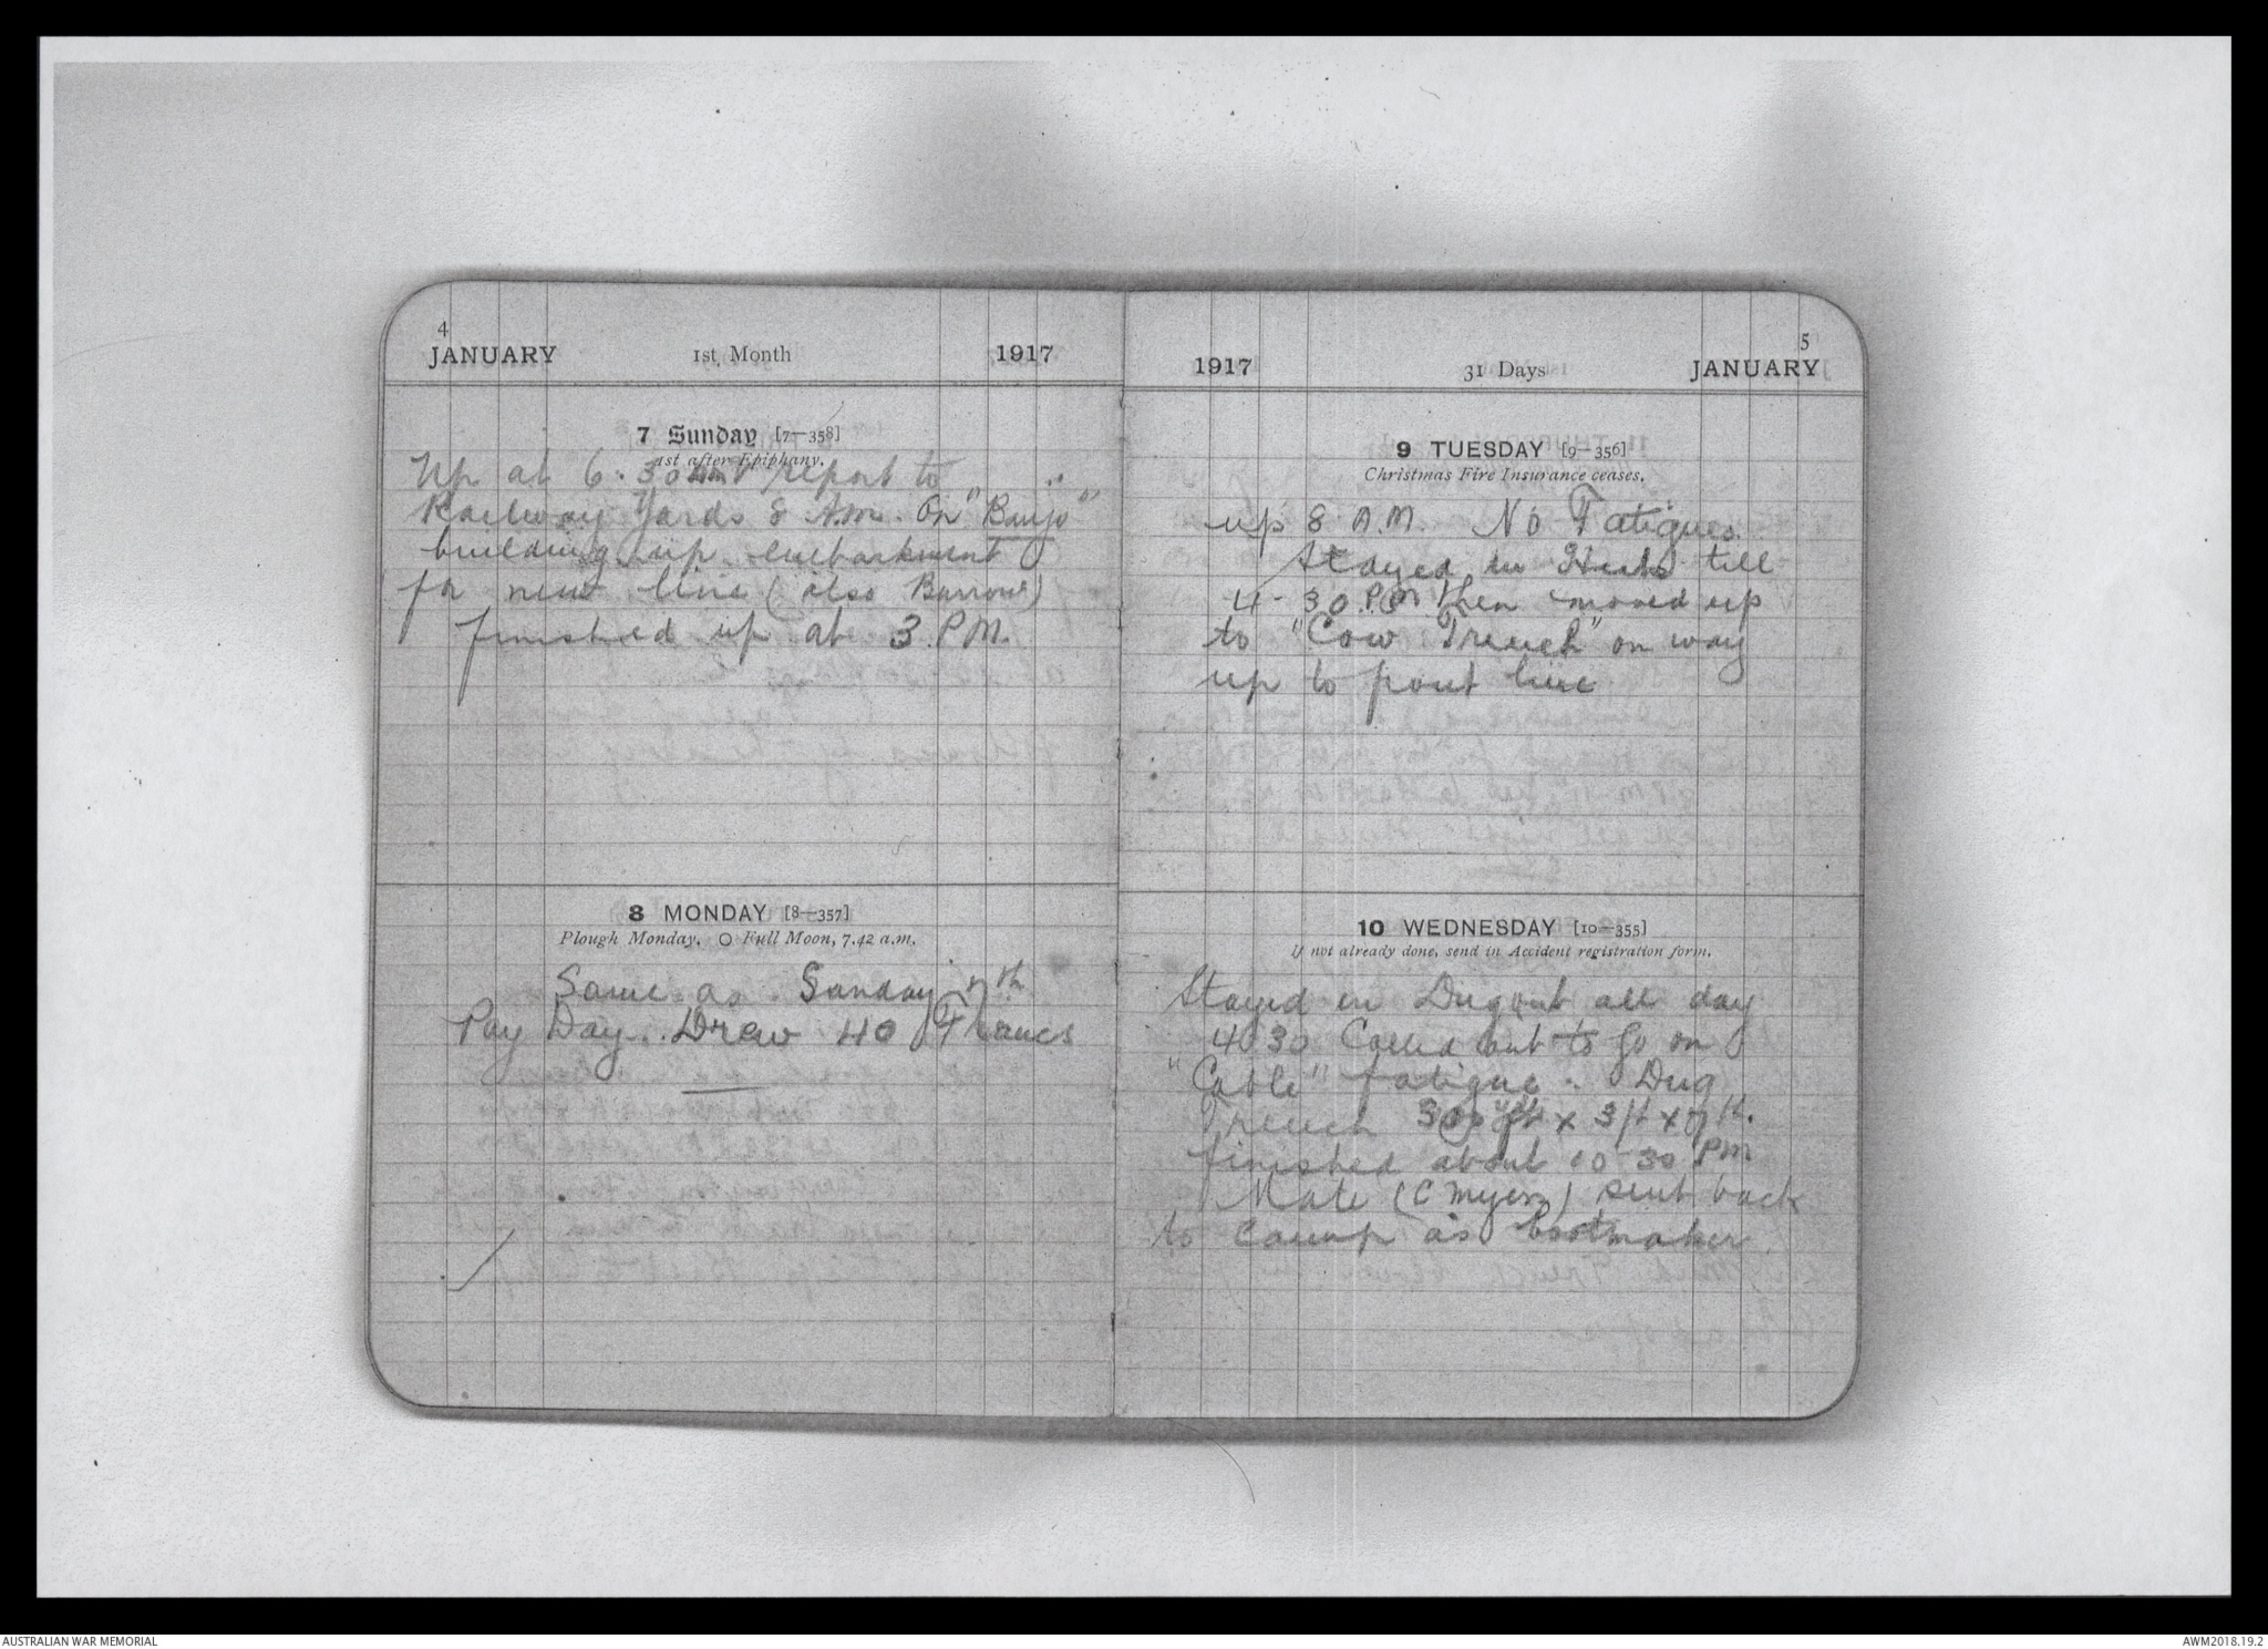 4
JANUARY 1st Month 1917
7 Sunday [7—358]
1st after Epiphany.
Up at 6.30 report to
Railway Yards 8 A.M. On "Banjo"
building up embarkment
for new line (also Barrow)
finished up at 3 P.M.
8 MONDAY [8—357]
Plough Monday. ○ Full Moon, 7.42 a.m.
Same as Sunday 7th
Pay Day. Drew 40 Francs
5
1917 31 Days JANUARY
9 TUESDAY [9—356]
Christmas Fire Insurance ceases.
up 8 A.M. No Fatigues.
Stayed in Huts till
4-30 P.M then moved up
to "Cow Trench" on way
up to front line
10 WEDNESDAY [10—355]
If not already done, send in Accident registration form.
Stayed in Dugout all day
4 30 Called out to go on
"Cable" fatigue. Dug
Trench 300 x 3 ft x 7 ft.
finished about 10-30 PM
Mate (C Myers) sent back
to Camp as bootmaker.
AUSTRALIAN WAR MEMORIAL
AWM2018.19.2